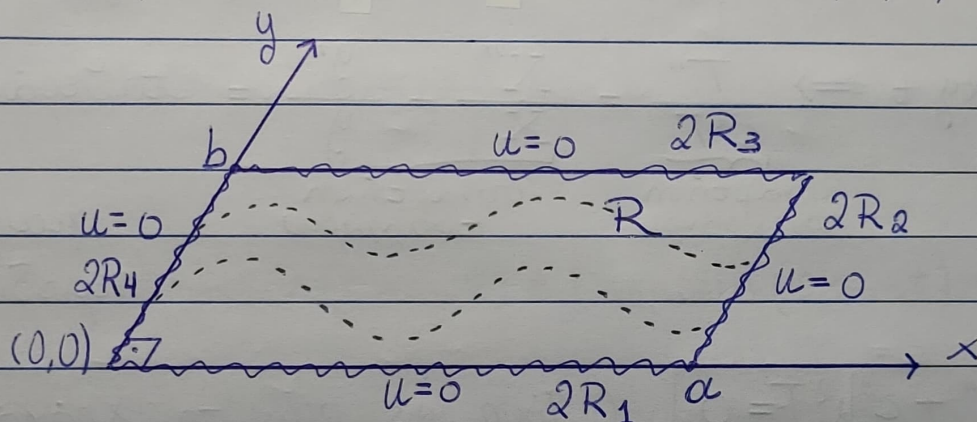 y
b u=0 2R3
u=0 R 2R2
2R4 u=0
(0,0) x
u=0 2R1 a